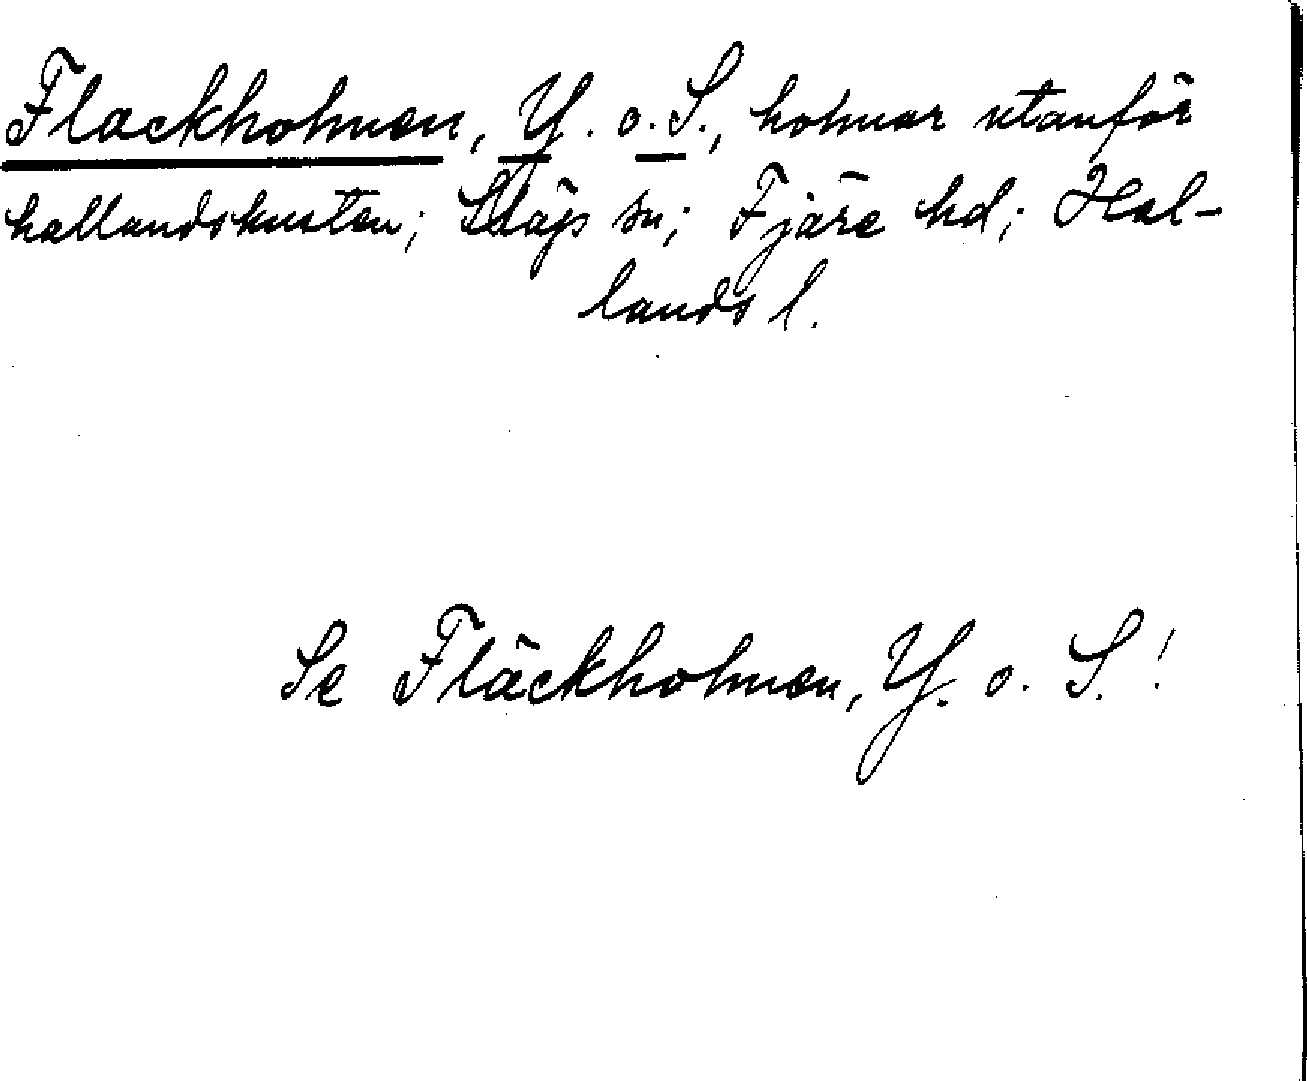 Flackholmen, Y. o. S., holmar utanför
hallandskusten; Släps sn; Fjäre hd; Hal-
lands l.
Se Fläckholmen, Y. o. S.!